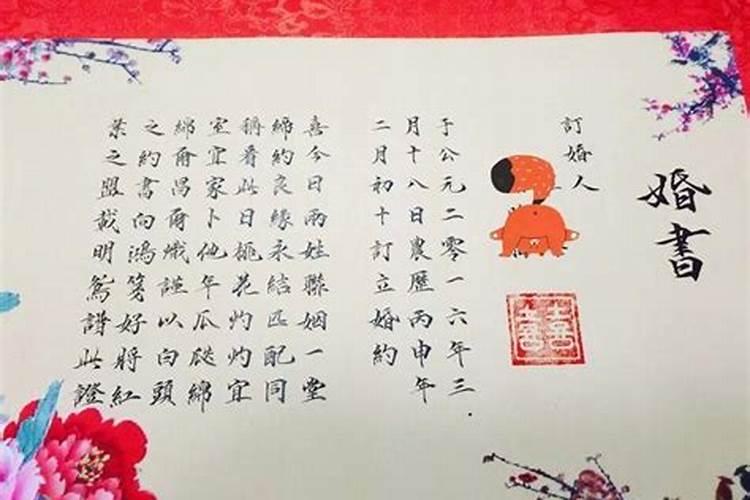 婚書
訂婚人
囍
于公元二零一六年三
月十八日農歷丙申年
二月初十訂立婚約
喜今日兩姓聯姻一堂
締約良緣永結匹配同
稱看此日桃花灼灼宜
室宜家卜他年瓜瓞綿
綿爾昌爾熾謹以白頭
之約書向鴻箋好將紅
葉之盟載明鴛譜此證